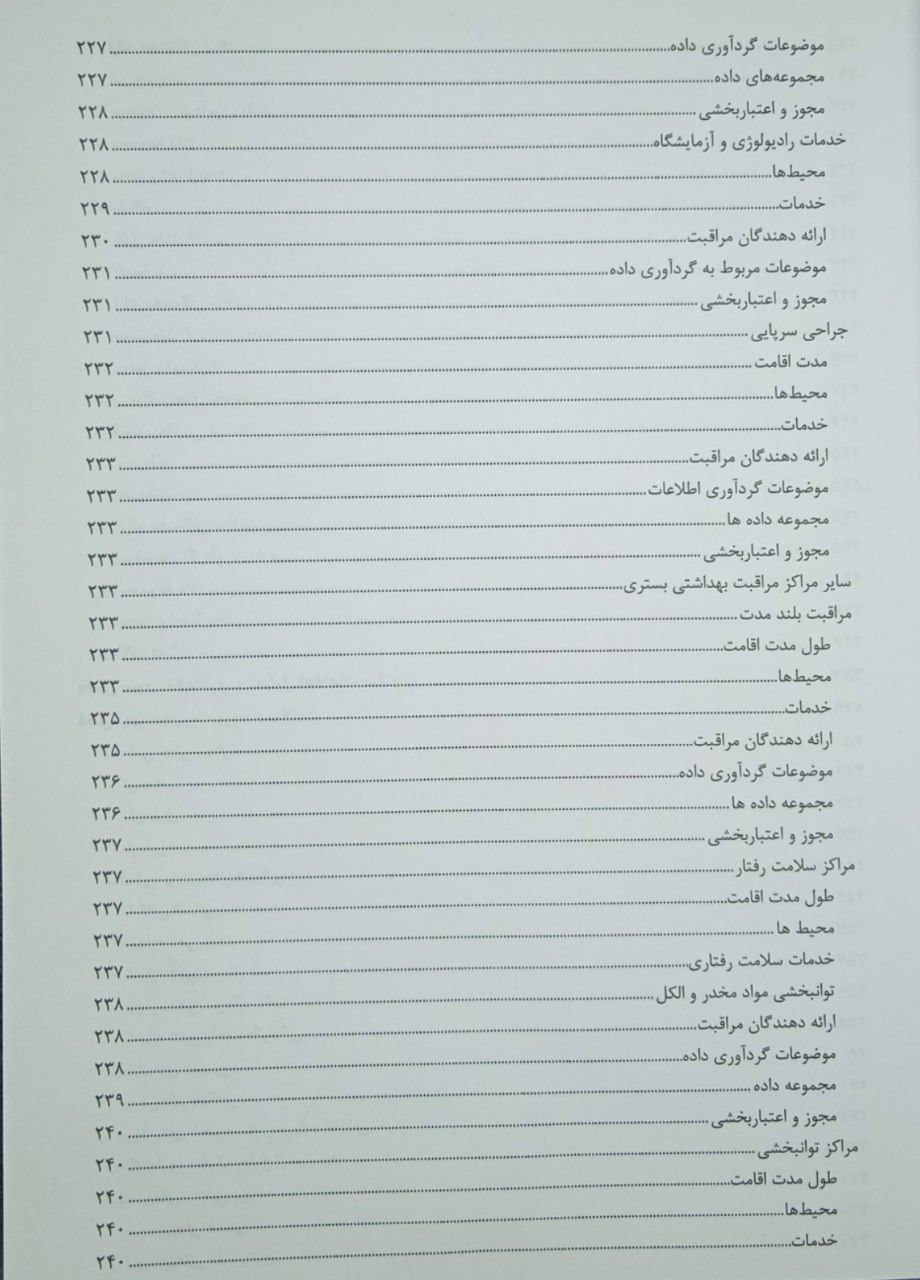 موضوعات گردآوری داده ۲۲۷
مجموعه‌های داده ۲۲۷
مجوز و اعتباربخشی ۲۲۸
خدمات رادیولوژی و آزمایشگاه ۲۲۸
محیط‌ها ۲۲۸
خدمات ۲۲۹
ارائه دهندگان مراقبت ۲۳۰
موضوعات مربوط به گردآوری داده ۲۳۱
مجوز و اعتباربخشی ۲۳۱
جراحی سرپایی ۲۳۱
مدت اقامت ۲۳۲
محیط‌ها ۲۳۲
خدمات ۲۳۲
ارائه دهندگان مراقبت ۲۳۳
موضوعات گردآوری اطلاعات ۲۳۳
مجموعه داده ها ۲۳۳
مجوز و اعتباربخشی ۲۳۳
سایر مراکز مراقبت بهداشتی بستری ۲۳۳
مراقبت بلند مدت ۲۳۳
طول مدت اقامت ۲۳۳
محیط‌ها ۲۳۳
خدمات ۲۳۵
ارائه دهندگان مراقبت ۲۳۵
موضوعات گردآوری داده ۲۳۶
مجموعه داده ها ۲۳۶
مجوز و اعتباربخشی ۲۳۷
مراکز سلامت رفتار ۲۳۷
طول مدت اقامت ۲۳۷
محیط ها ۲۳۷
خدمات سلامت رفتاری ۲۳۷
توانبخشی مواد مخدر و الکل ۲۳۸
ارائه دهندگان مراقبت ۲۳۸
موضوعات گردآوری داده ۲۳۸
مجموعه داده ۲۳۹
مجوز و اعتباربخشی ۲۴۰
مراکز توانبخشی ۲۴۰
طول مدت اقامت ۲۴۰
محیط‌ها ۲۴۰
خدمات ۲۴۰